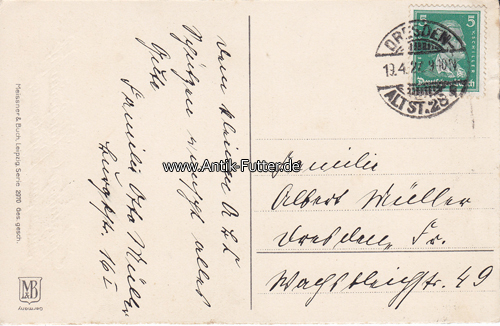 Meissner & Buch, Leipzig. Serie 2970 Ges. gesch.
M&B
Germany
Dem kleinen
wünscht alles
Gute
Familie Otto Müller
16 I
DRESDEN
19.4.27. 9-10N
ALTST. 28
5 5
www.Antik-Futter.de
Familie
Albert Müller
Dresden, Fr.
Wachsbleichstr. 49